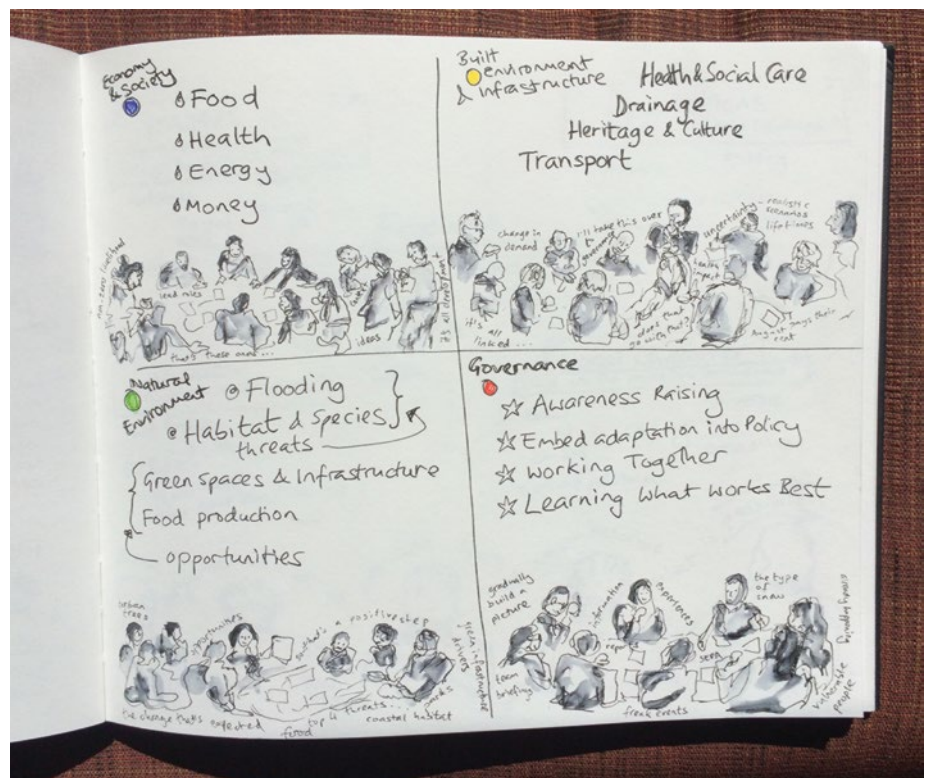 Economy
& Society
Food
Health
Energy
Money
non-zero likelihood
lead roles
that's these ones...
ideas
Built
environment
& Infrastructure
Health & Social Care
Drainage
Heritage & Culture
Transport
change in
demand
I'll take this over
to
governance
uncertainty - realistic
scenarios
lifetimes
health
impact
it's all
linked...
does that
go with that?
August pays their
rent
Natural
Environment
@ Flooding
@ Habitat & Species
threats
Green spaces & Infrastructure
Food production
opportunities
urban
trees
opportunities
what's a positive step
green infrastructure
drivers
parks
the change that's expected
food
top 4 threats...
coastal habitat
Governance
☆ Awareness Raising
☆ Embed adaptation into Policy
☆ Working Together
☆ Learning What Works Best
gradually
build a
picture
information
experiences
the type
of snow
already happening
report
team
briefing
freak events
vulnerable
people